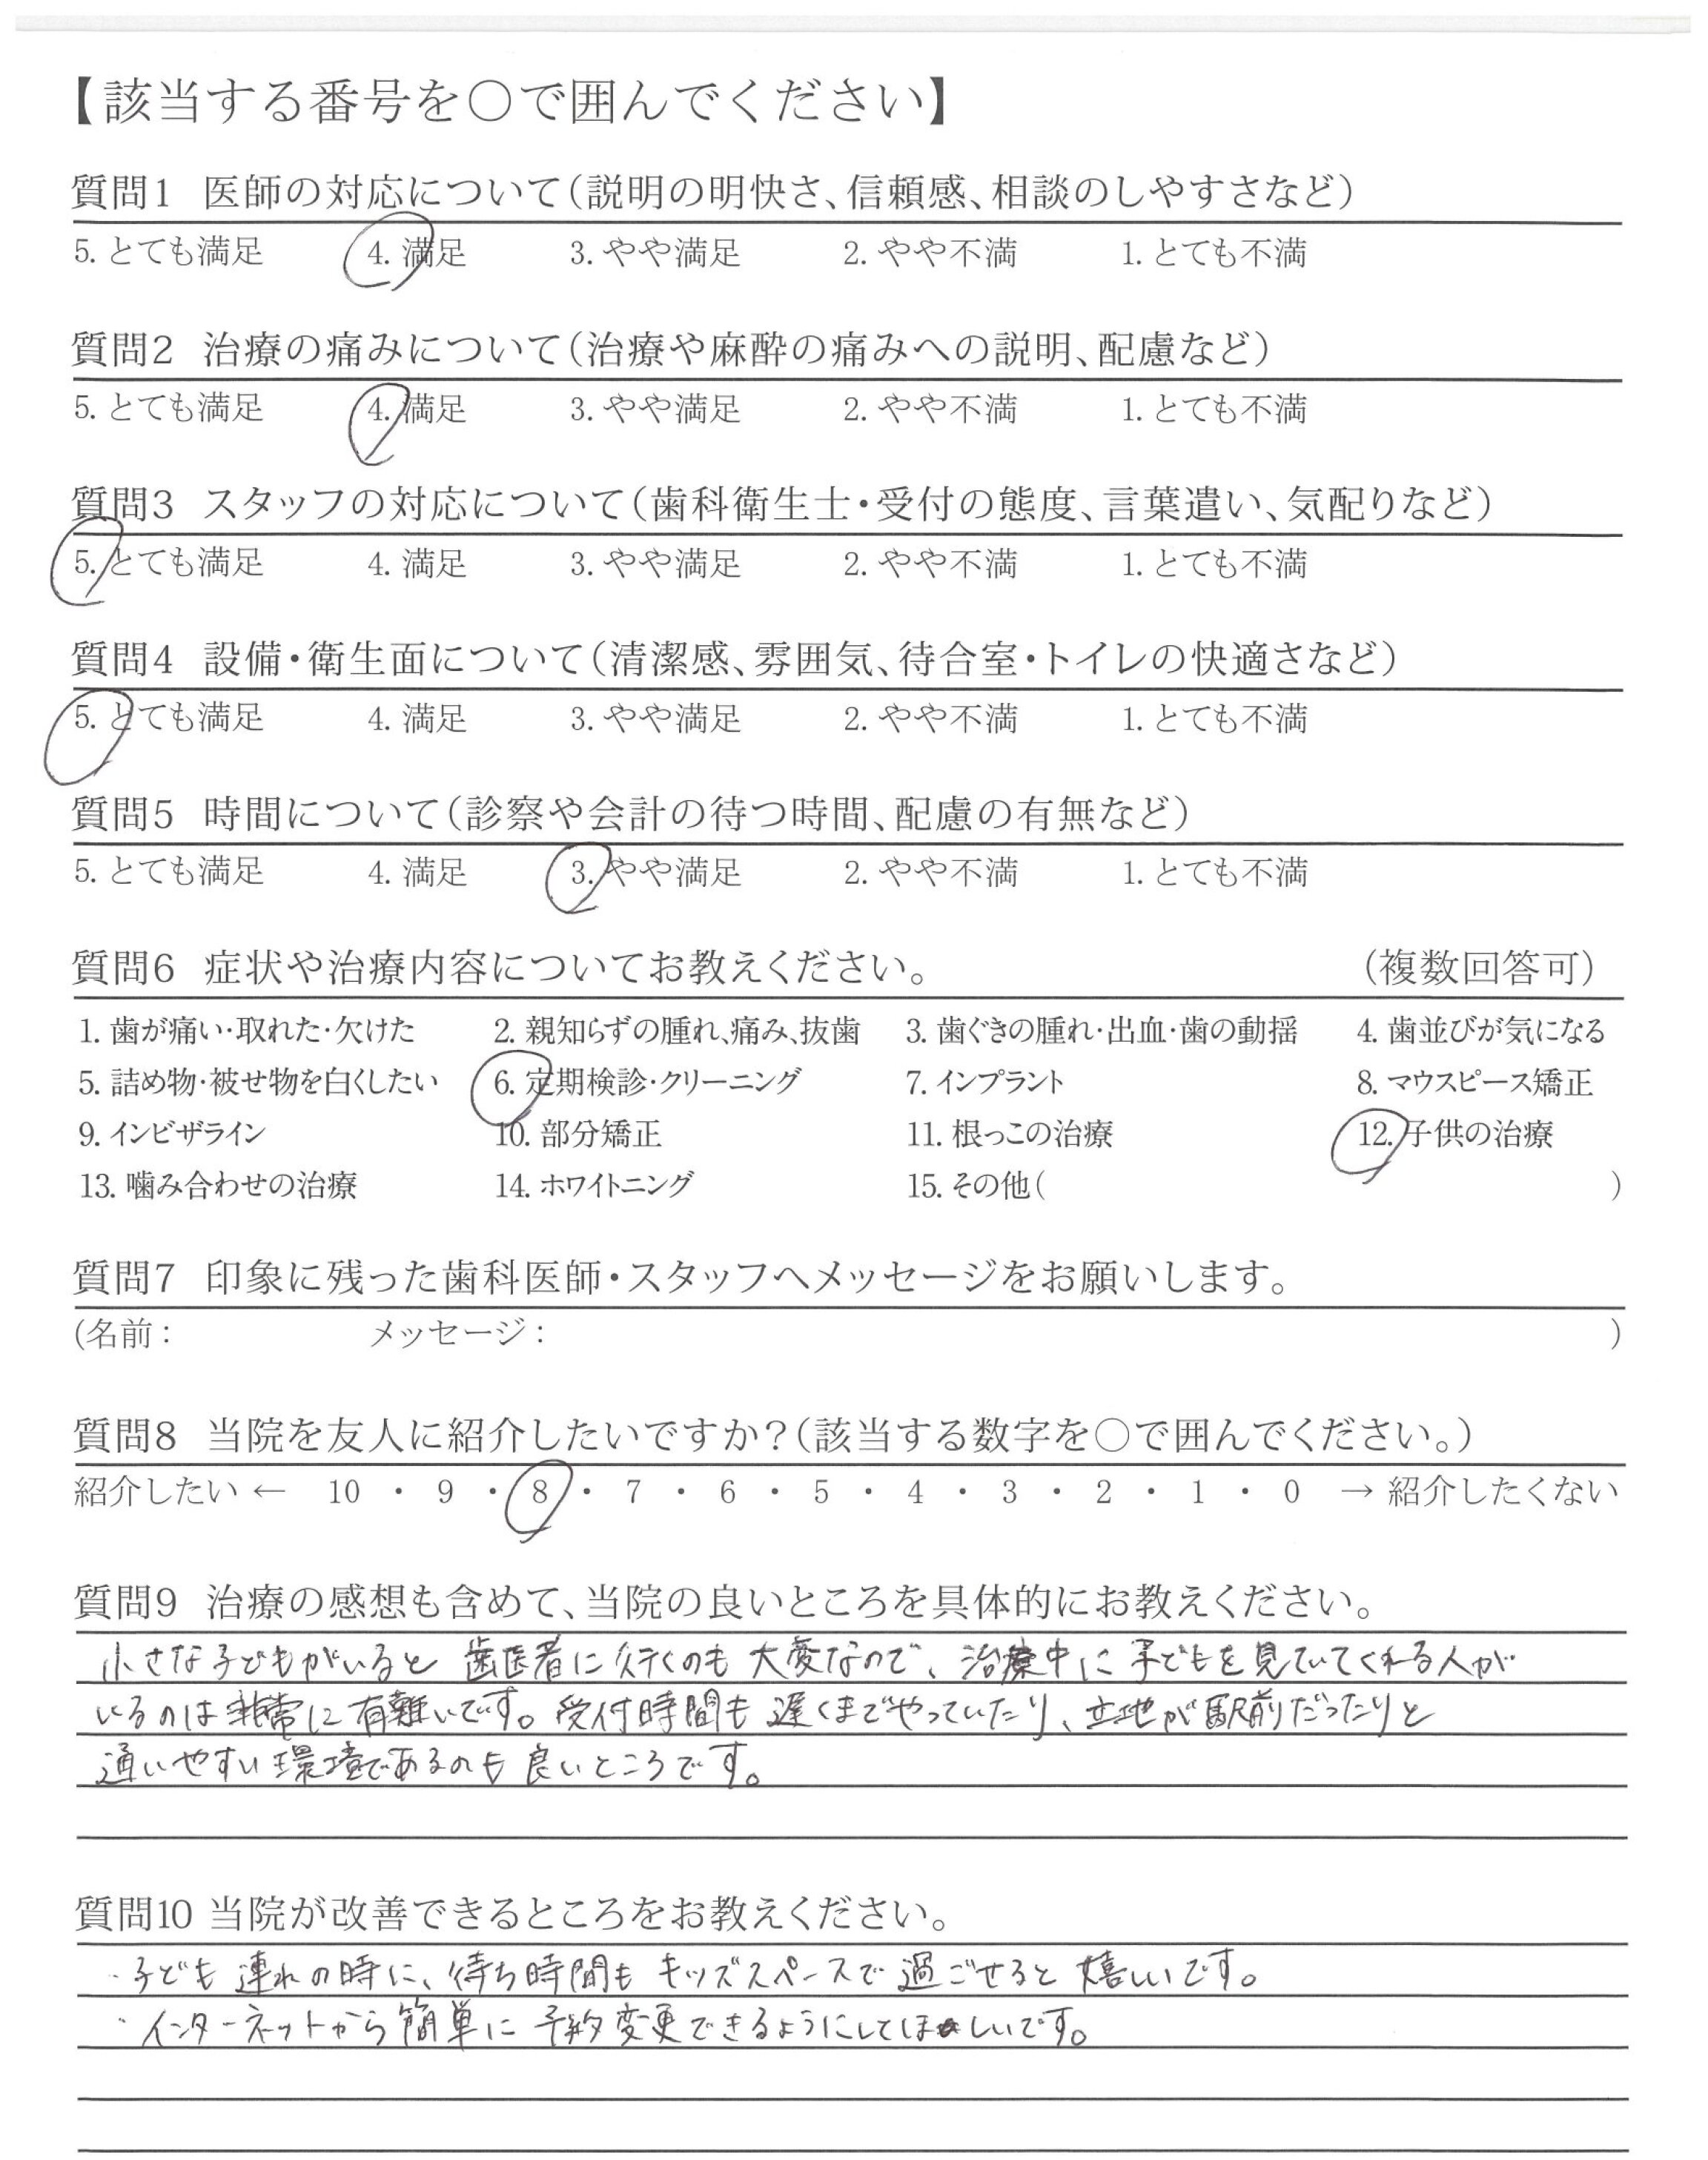 【該当する番号を○で囲んでください】
質問1 医師の対応について(説明の明快さ、信頼感、相談のしやすさなど)
5. とても満足 4. 満足 3. やや満足 2. やや不満 1. とても不満
質問2 治療の痛みについて(治療や麻酔の痛みへの説明、配慮など)
5. とても満足 4. 満足 3. やや満足 2. やや不満 1. とても不満
質問3 スタッフの対応について(歯科衛生士・受付の態度、言葉遣い、気配りなど)
5. とても満足 4. 満足 3. やや満足 2. やや不満 1. とても不満
質問4 設備・衛生面について(清潔感、雰囲気、待合室・トイレの快適さなど)
5. とても満足 4. 満足 3. やや満足 2. やや不満 1. とても不満
質問5 時間について(診察や会計の待つ時間、配慮の有無など)
5. とても満足 4. 満足 3. やや満足 2. やや不満 1. とても不満
質問6 症状や治療内容についてお教えください。 (複数回答可)
1. 歯が痛い・取れた・欠けた 2. 親知らずの腫れ、痛み、抜歯 3. 歯ぐきの腫れ・出血・歯の動揺 4. 歯並びが気になる
5. 詰め物・被せ物を白くしたい 6. 定期検診・クリーニング 7. インプラント 8. マウスピース矯正
9. インビザライン 10. 部分矯正 11. 根っこの治療 12. 子供の治療
13. 噛み合わせの治療 14. ホワイトニング 15. その他( )
質問7 印象に残った歯科医師・スタッフへメッセージをお願いします。
(名前: メッセージ: )
質問8 当院を友人に紹介したいですか?(該当する数字を○で囲んでください。)
紹介したい ← 10 ・ 9 ・ 8 ・ 7 ・ 6 ・ 5 ・ 4 ・ 3 ・ 2 ・ 1 ・ 0 → 紹介したくない
質問9 治療の感想も含めて、当院の良いところを具体的にお教えください。
小さな子どもがいると 歯医者に行くのも 大変なので、治療中に 子どもを見ていてくれる人が
いるのは非常に有難いです。受付時間も遅くまでやっていたり、立地が駅前だったりと
通いやすい環境であるのも良いところです。
質問10 当院が改善できるところをお教えください。
・子ども連れの時に、待ち時間もキッズスペースで過ごせると嬉しいです。
・インターネットから簡単に予約変更できるようにしてほしいです。